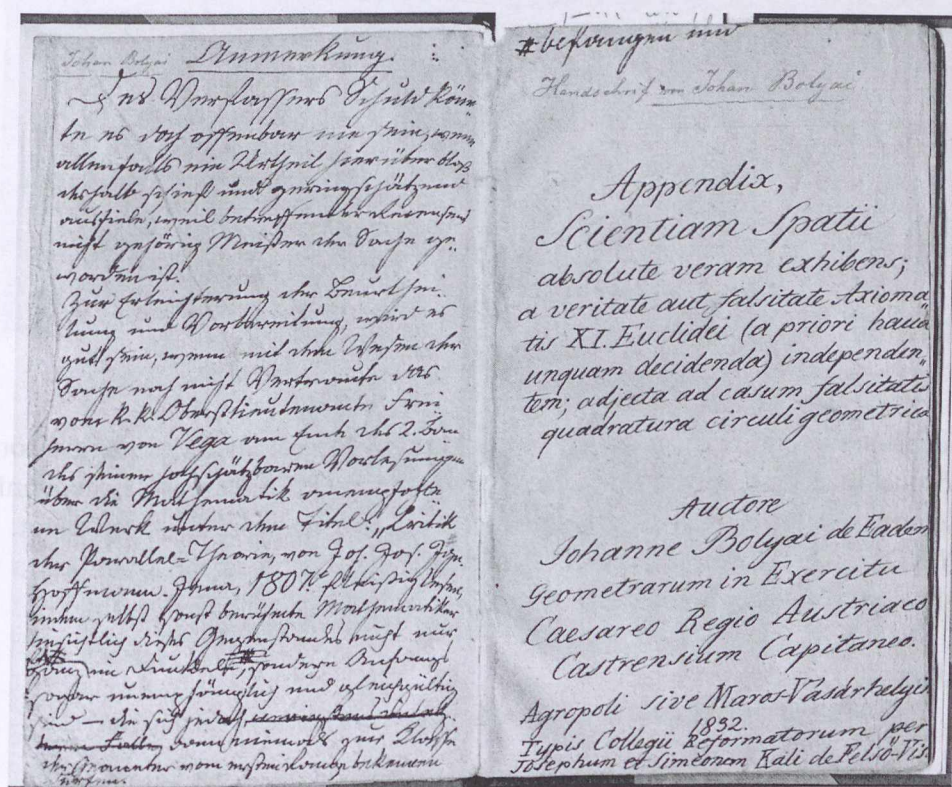 Johan Bolyai Anmerkung.
Des Verfassers Schuld könn
te es doch offenbar nie sein, wenn
allenfalls ein Urtheil hierüber bloß
deshalb schief und geringschätzend
ausfiele, weil betreffender Recensent
nicht gehörig Meister der Sache ge-
worden ist.
Zur Erleichterung der Beurthei-
lung und Vorbereitung, wird es
gut sein, wenn mit dem Wesen der
Sache noch nicht Vertraute das
vom k. k. Oberstlieutenante Frei
herrn von Vega am Ende des 2. Ban
des seiner hochschätzbaren Vorlesungen
über die Mathematik anempfohle
ne Werk unter dem Titel: „Kritik
der Parallel-Theorie, von Joh. Jos. Ign.
Hoffmann. Jena, 1807." fleißig lesen,
indem selbst sonst berühmte Mathematiker
hinsichtlich dieses Gegenstandes nicht nur
ganz im Dunkel # sondern Anfangs
sogar unempfänglich und gleichgültig
sind — die sich jedoch
dann niemals zur Klasse
der Geometer vom ersten Range bekennen
dürfen.
# befangen und
Handschrif von Johan Bolyai
Appendix,
Scientiam Spatii
absolute veram exhibens;
a veritate aut falsitate Axioma
tis XI. Euclidei (a priori haud
unquam decidenda) independen„
tem; adjecta ad casum falsitatis
quadratura circuli geometrica
Auctore
Johanne Bolyai de Eadem
Geometrarum in Exercitu
Caesareo Regio Austriaco
Castrensium Capitaneo.
Agropoli sive Maros-Vásárhelyii
1832.
Typis Collegii Reformatorum per
Josephum et Simeonem Kali de Felső-Vist